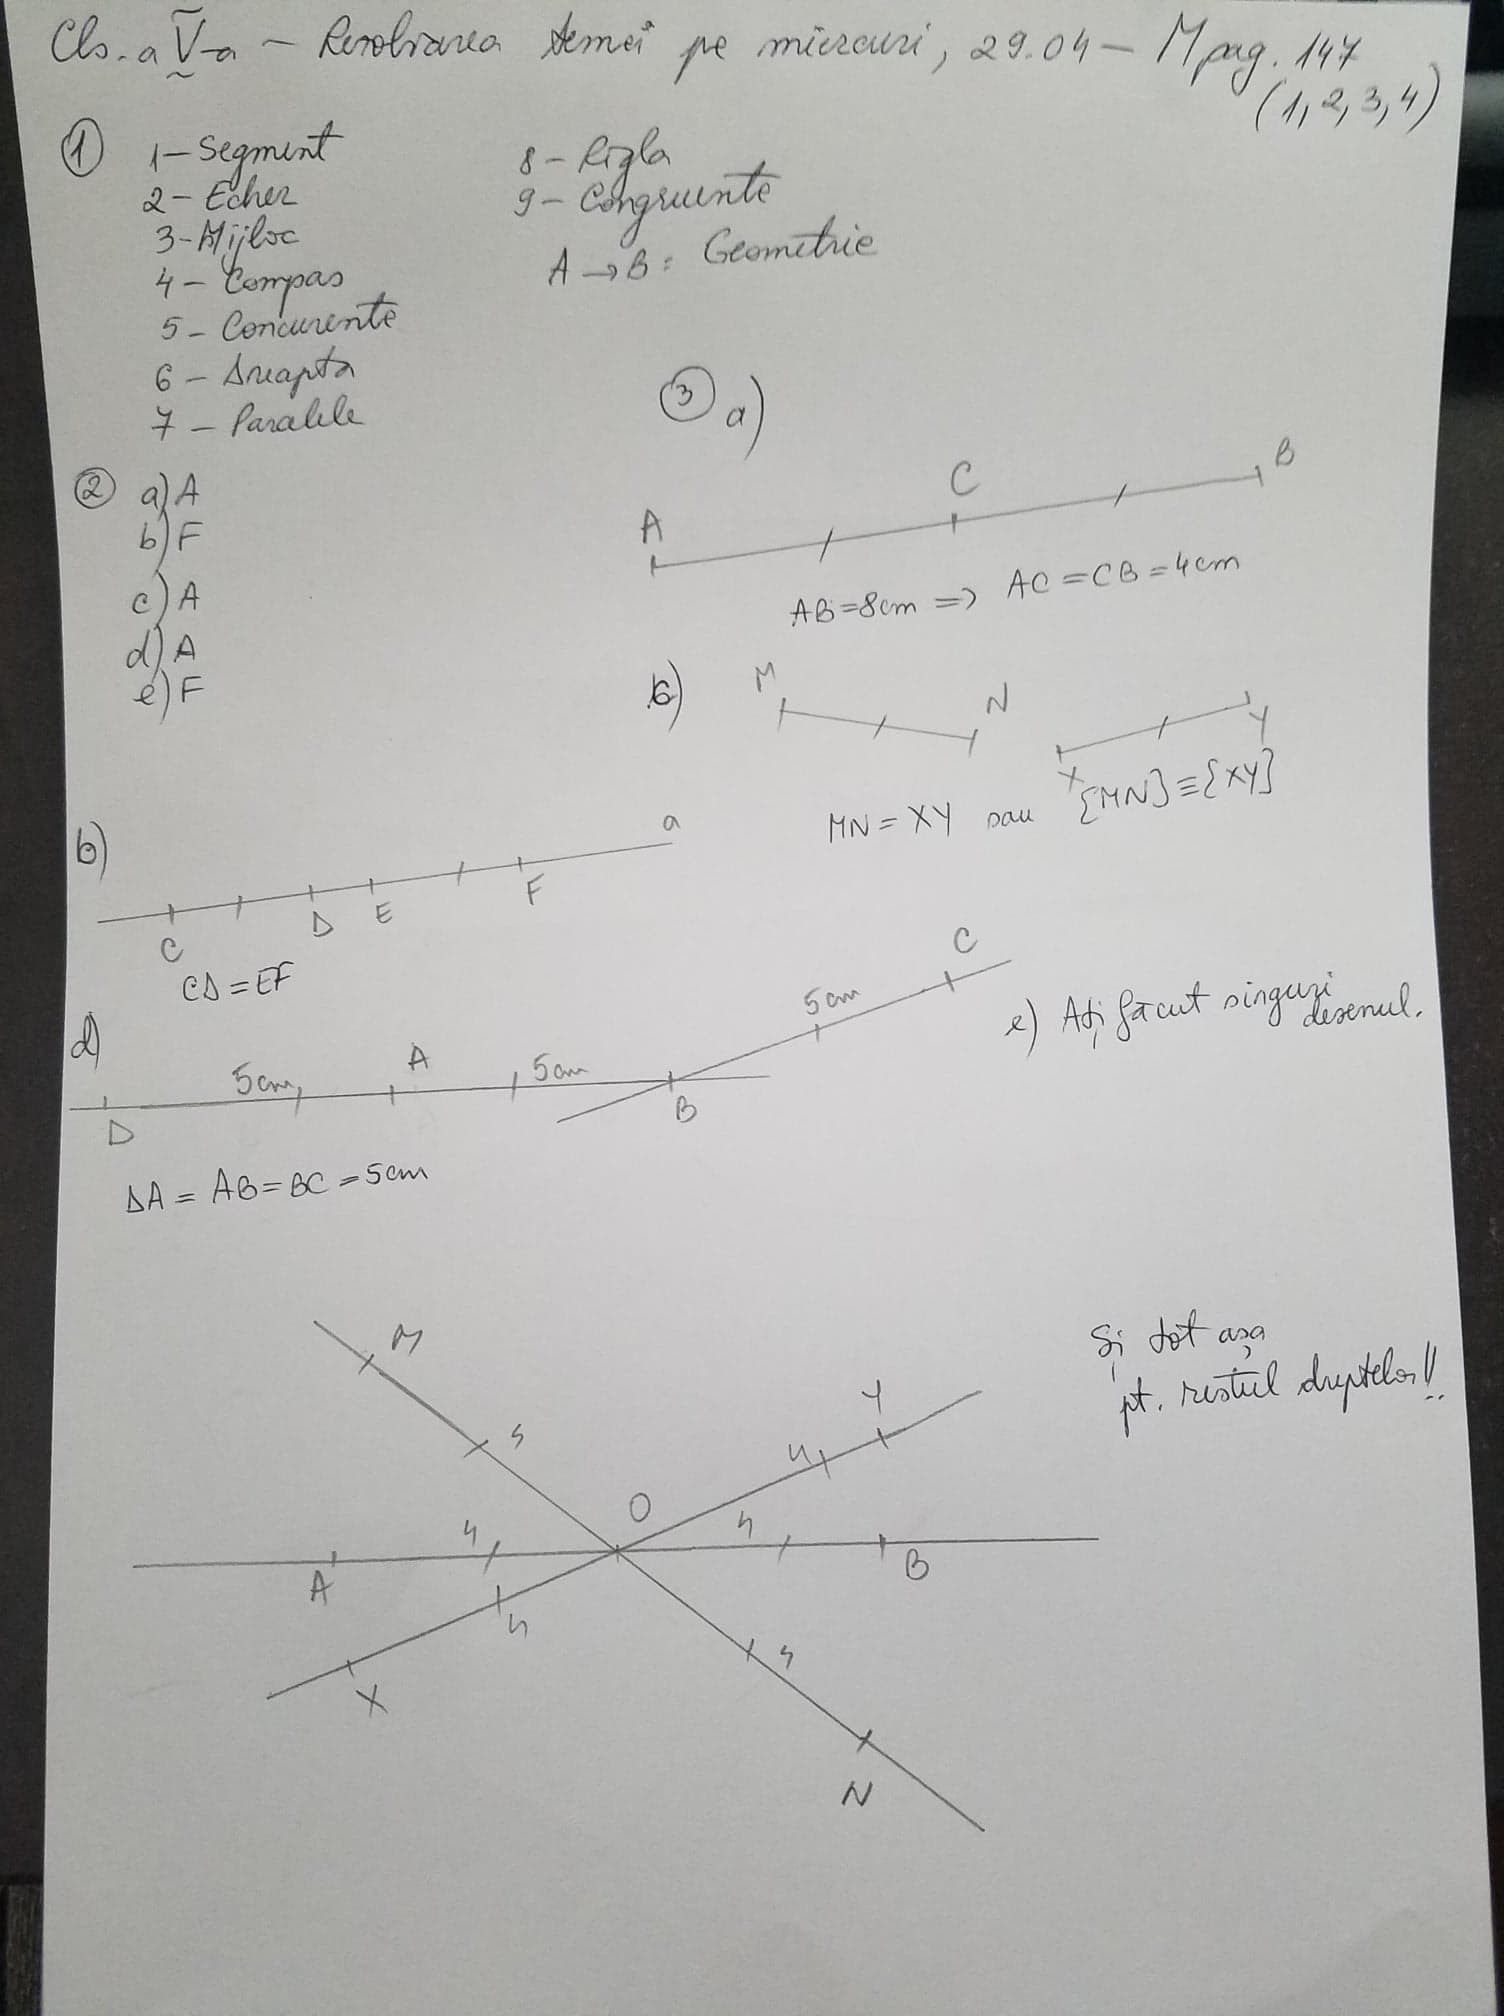 Cls. a V-a - Rezolvarea temei pe miercuri, 29.04 - M pag. 147
(1, 2, 3, 4)
1
1 - Segment
2 - Echer
3 - Mijloc
4 - Compas
5 - Concurente
6 - Dreapta
7 - Paralele
8 - Rigla
9 - Congruente
A → B = Geometrie
2
a) A
b) F
c) A
d) A
e) F
3 a)
A C B
AB = 8cm => AC = CB = 4cm
M N X Y
MN = XY sau [MN] ≡ [XY]
b)
C D E F a
CD = EF
d)
D 5cm A 5cm B 5cm C
DA = AB = BC = 5cm
e) Ați făcut singuri
desenul.
M 4 O 4 Y
A 4 4 B
X 4 4 N
Și tot așa
pt. restul dreptelor!!